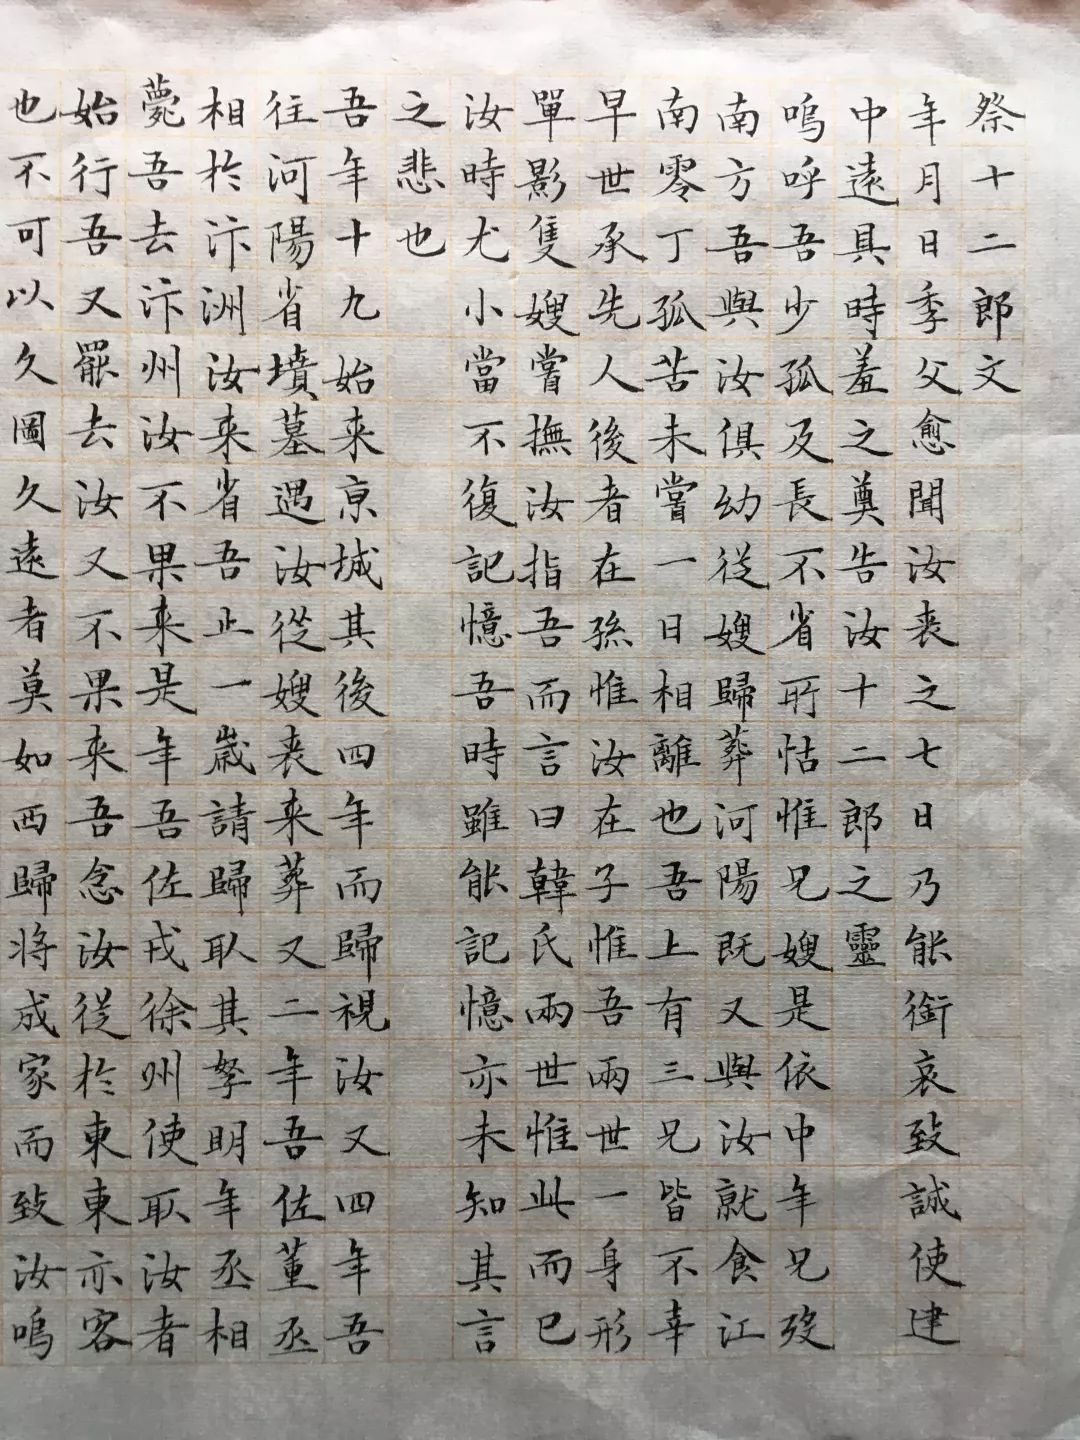 祭十二郎文
年月日季父愈聞汝喪之七日乃能銜哀致誠使建
中遠具時羞之奠告汝十二郎之靈
嗚呼吾少孤及長不省所怙惟兄嫂是依中年兄歿
南方吾與汝俱幼從嫂歸葬河陽既又與汝就食江
南零丁孤苦未嘗一日相離也吾上有三兄皆不幸
早世承先人後者在孫惟汝在子惟吾兩世一身形
單影隻嫂嘗撫汝指吾而言曰韓氏兩世惟此而已
汝時尤小當不復記憶吾時雖能記憶亦未知其言
之悲也
吾年十九始来京城其後四年而歸視汝又四年吾
往河陽省墳墓遇汝從嫂喪来葬又二年吾佐董丞
相於汴洲汝来省吾止一歲請歸取其孥明年丞相
薨吾去汴州汝不果来是年吾佐戎徐州使取汝者
始行吾又罷去汝又不果来吾念汝從於東東亦客
也不可以久圖久遠者莫如西歸將成家而致汝嗚